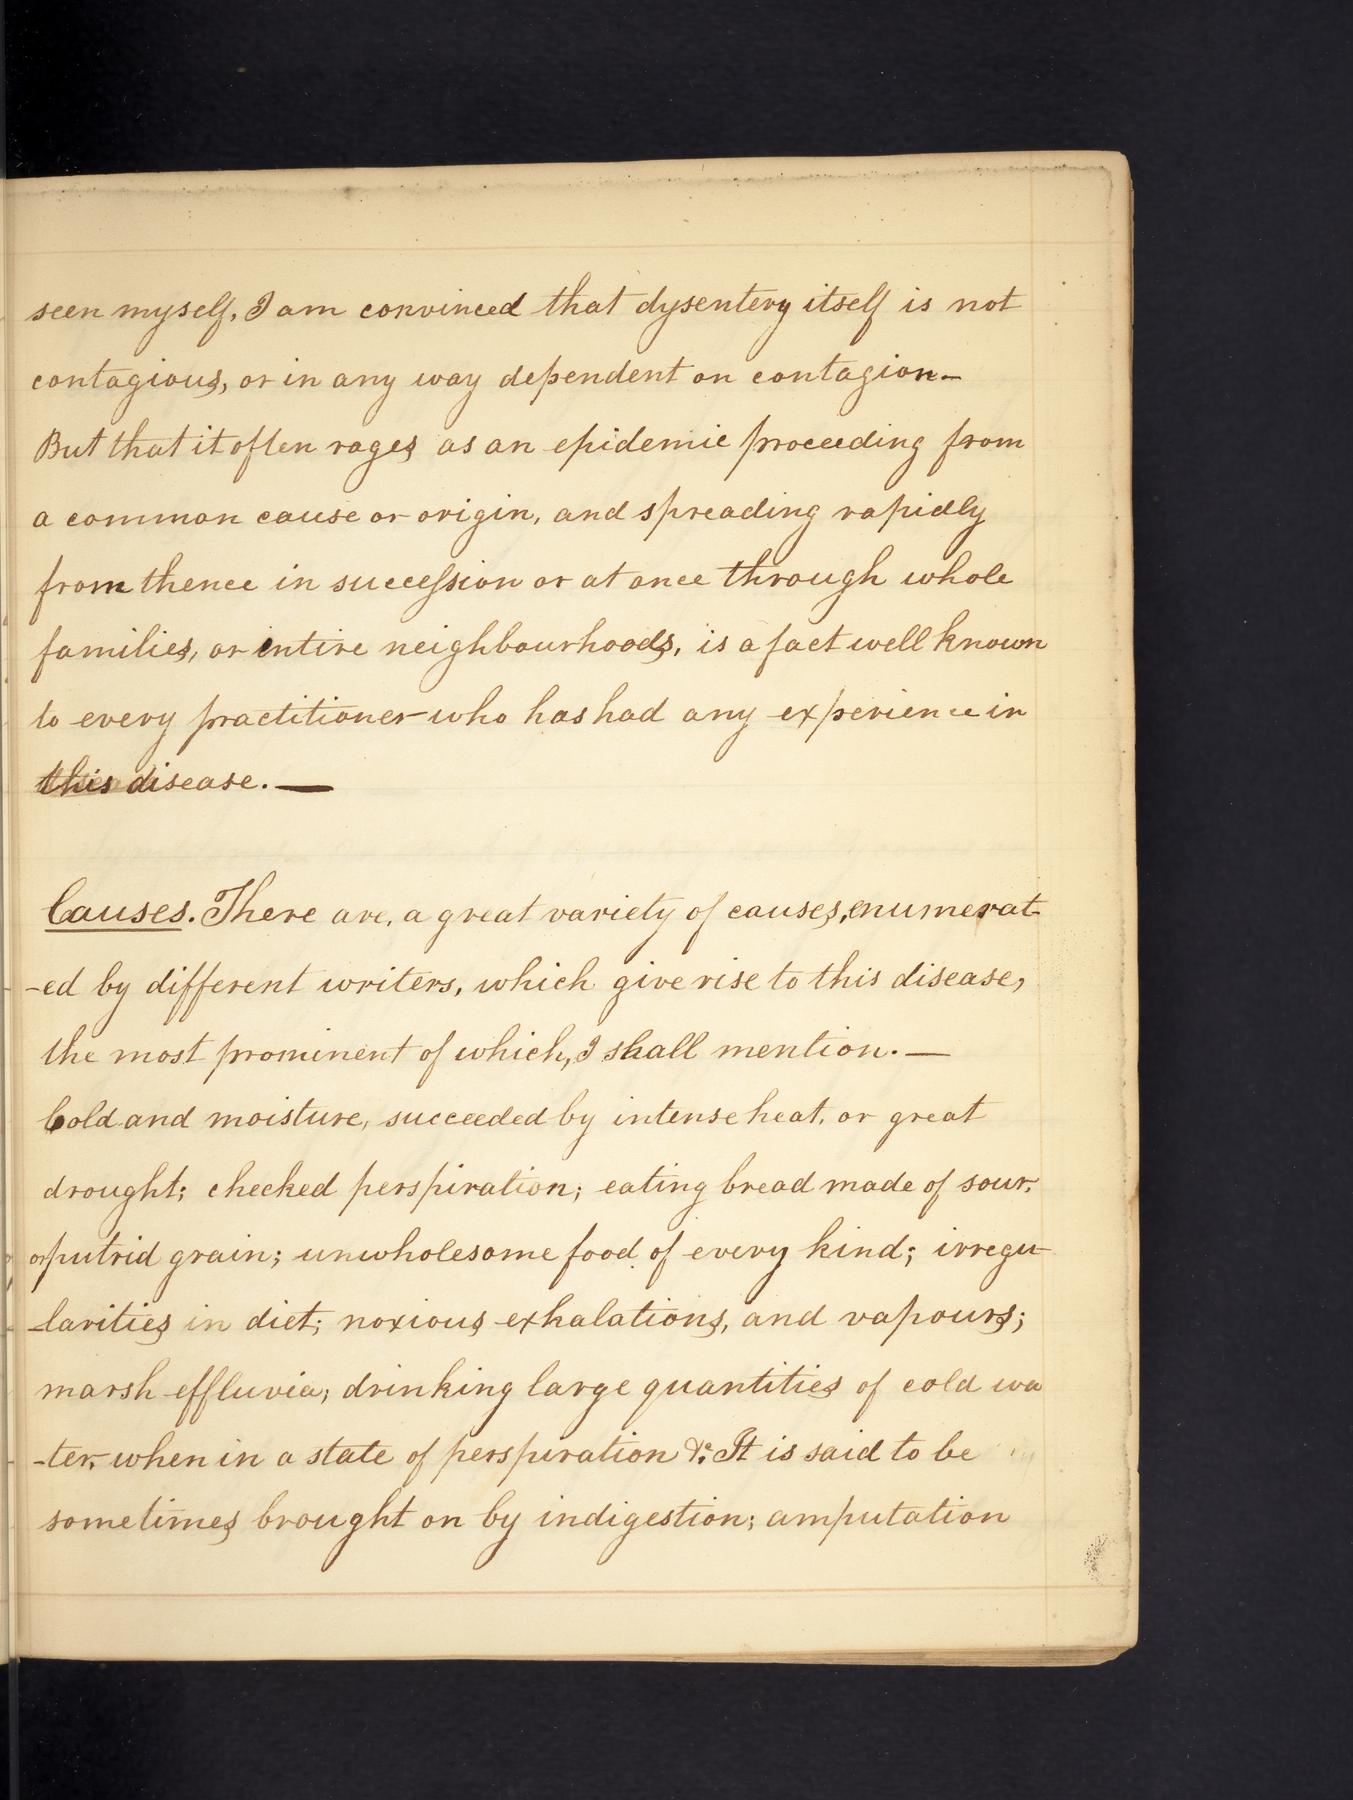 seen myself, I am convinced that dysentery itself is not
contagious, or in any way dependent on contagion—
But that it often rages as an epidemic proceeding from
a common cause or origin, and spreading rapidly
from thence in succession or at once through whole
families, or entire neighbourhoods, is a fact well known
to every practitioner who has had any experience in
this disease. —
Causes. There are, a great variety of causes, enumerat-
-ed by different writers, which give rise to this disease,
the most prominent of which, I shall mention. —
Cold and moisture, succeeded by intense heat, or great
drought; checked perspiration; eating bread made of sour,
or putrid grain; unwholesome food of every kind; irregu-
-larities in diet; noxious exhalations, and vapours;
marsh effluvia; drinking large quantities of cold wa
-ter, when in a state of perspiration &c. It is said to be
sometimes brought on by indigestion; amputation